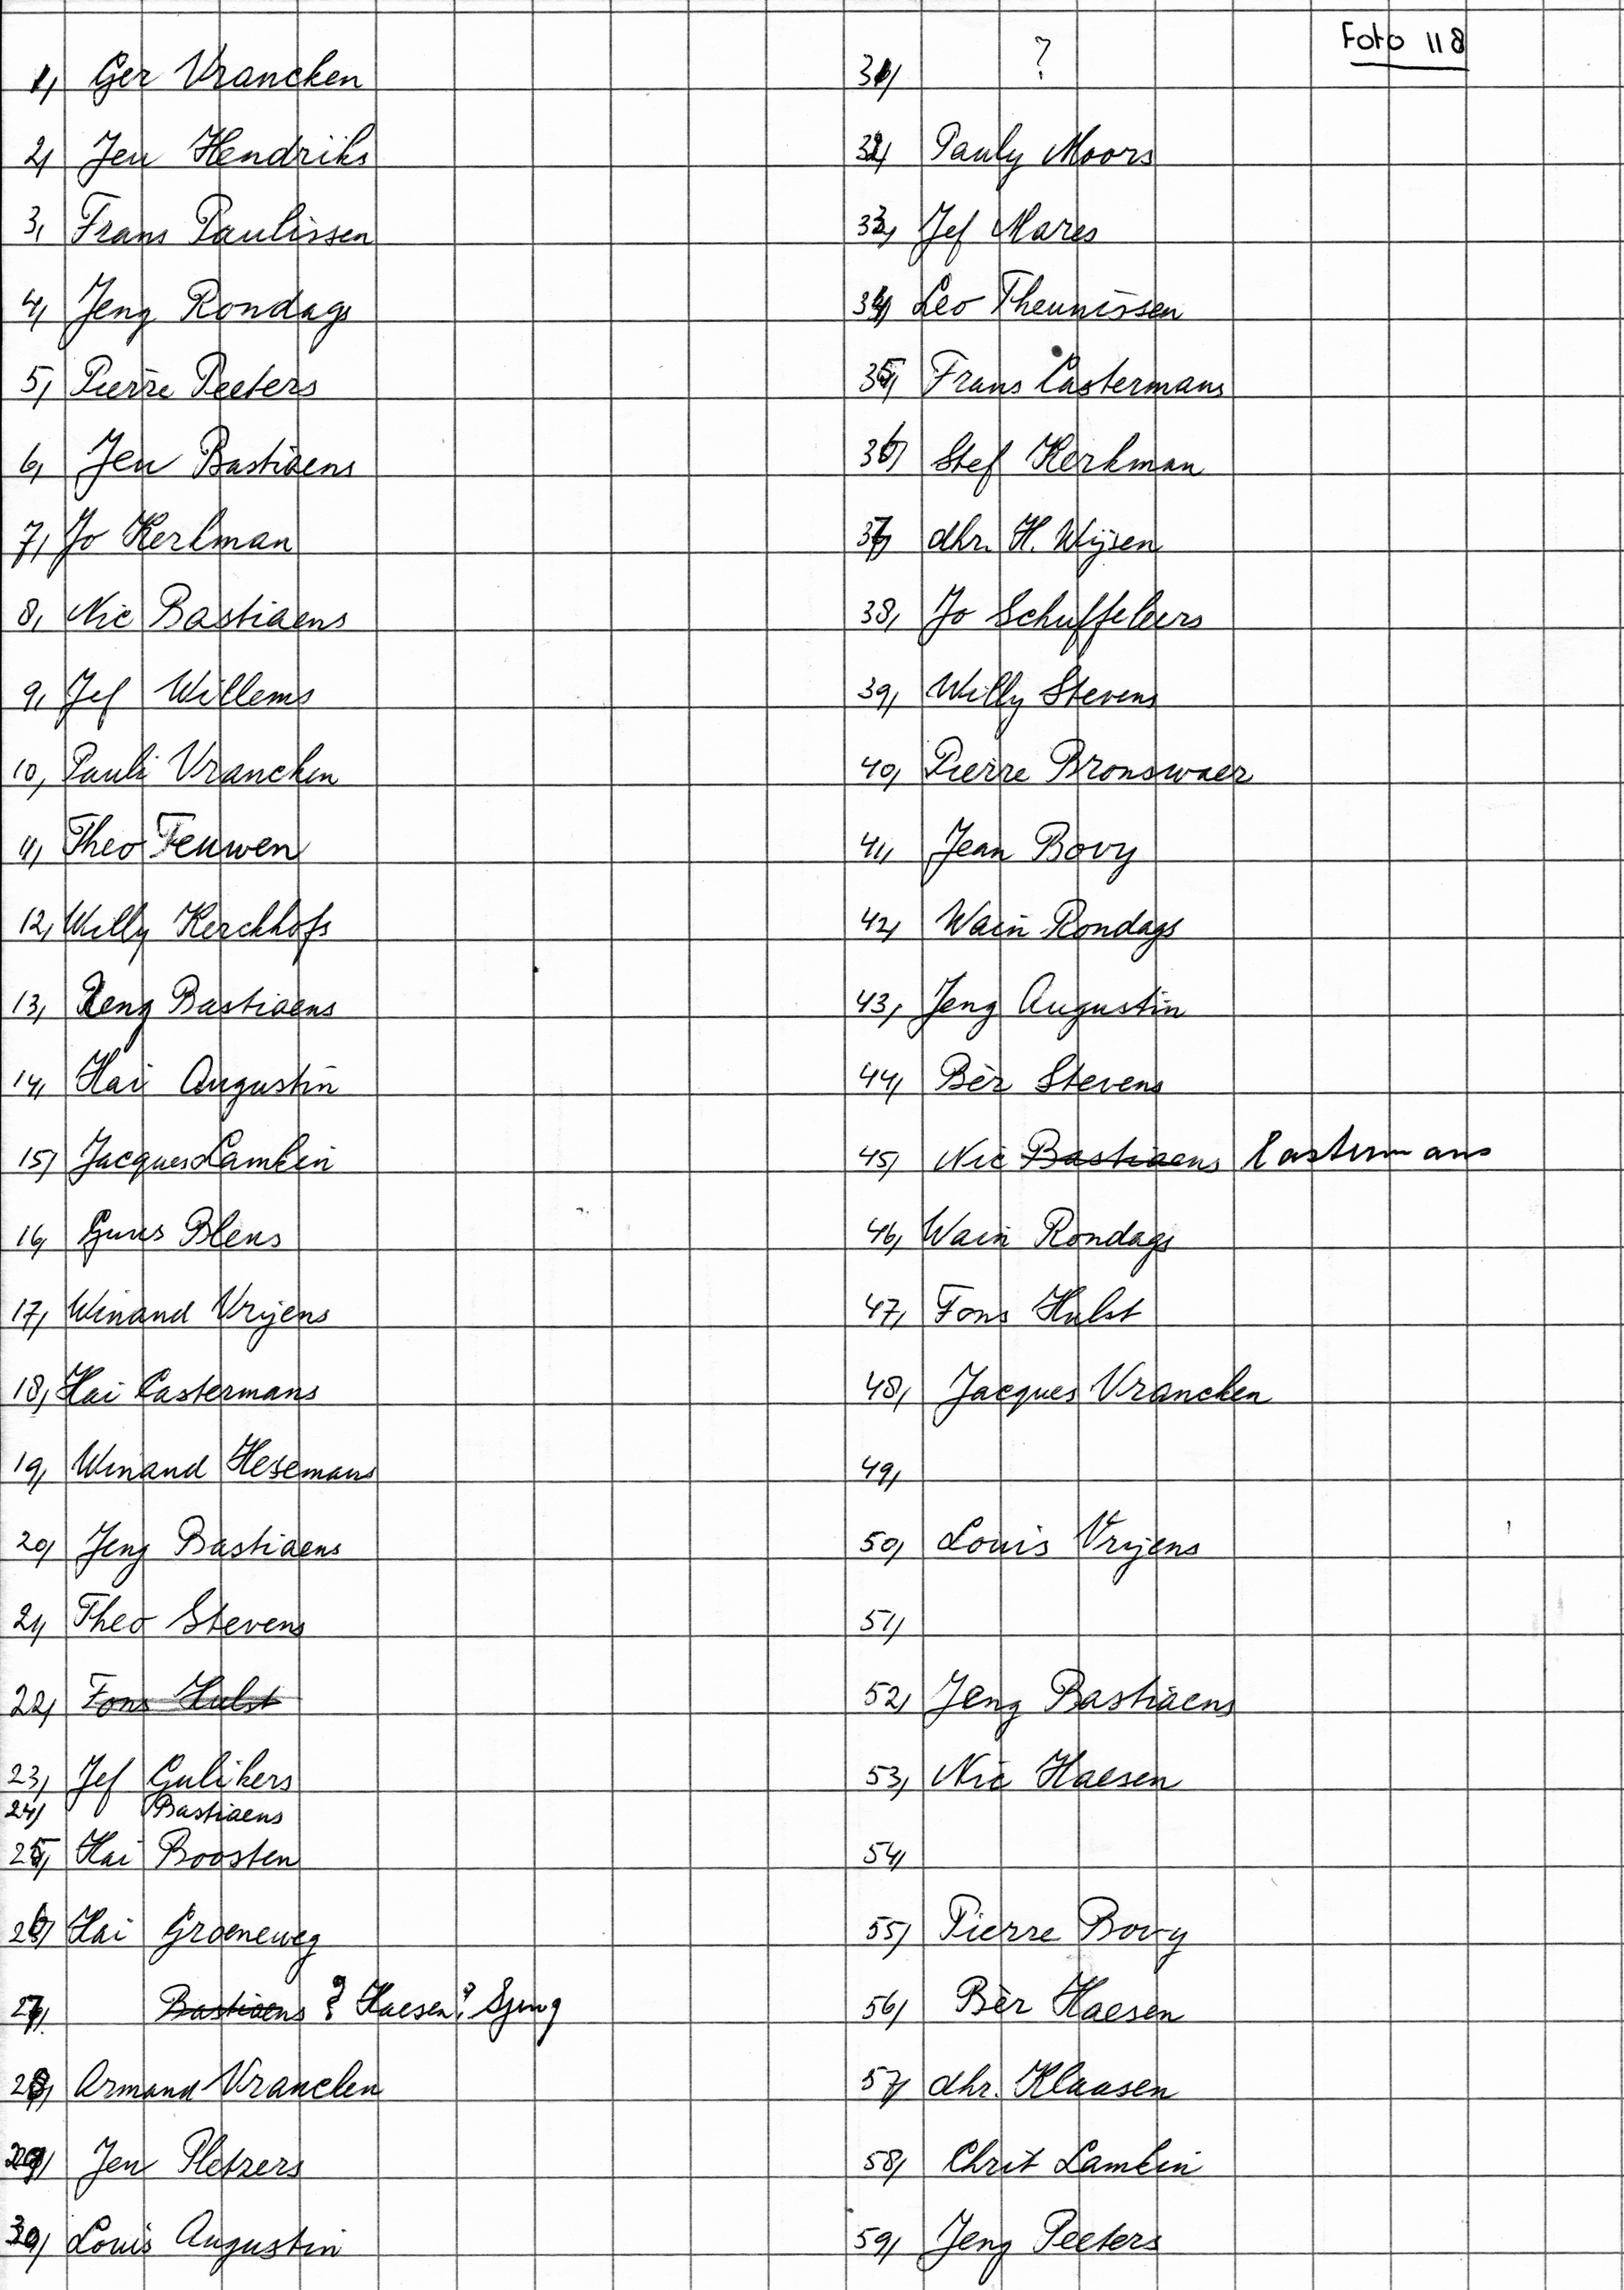 Foto 118
1, Ger Vrancken
2, Jeu Hendriks
3, Frans Paulissen
4, Jeng Rondags
5, Pierre Peeters
6, Jeu Bastiaens
7, Jo Kerkman
8, Nic Bastiaens
9, Jef Willems
10, Pauli Vrancken
11, Theo Teuwen
12, Willy Kerckhofs
13, Bastiaens
14, Hai Augustin
15, Jacques Lamkin
16, Guus Blens
17, Winand Vrijens
18, Hai Castermans
19, Winand Hesemans
20, Jeng Bastiaens
21, Theo Stevens
22, Fons Hulst
23, Jef Gulikers
24, Bastiaens
25, Hai Boosten
26, Hai Groeneweg
27, Bastiaens ? Haesen? Sjeng
28, Armand Vrancken
29, Jeu Pletzers
30, Louis Augustin
31, ?
32, Pauly Moors
33, Jef Mares
34, Leo Theunissen
35, Frans Castermans
36, Stef Kerkman
37, dhr. H. Wijsen
38, Jo Schuffeleers
39, Willy Stevens
40, Pierre Bronswaer
41, Jean Bovy
42, Wain Rondags
43, Jeng Augustin
44, Bèr Stevens
45, Nic Bastiaens Castermans
46, Wain Rondags
47, Fons Hulst
48, Jacques Vrancken
49,
50, Louis Vrijens
51,
52, Jeng Bastiaens
53, Nic Haesen
54,
55, Pierre Bovy
56, Bèr Haesen
57, dhr. Klaasen
58, Chrit Lamkin
59, Jeng Peeters